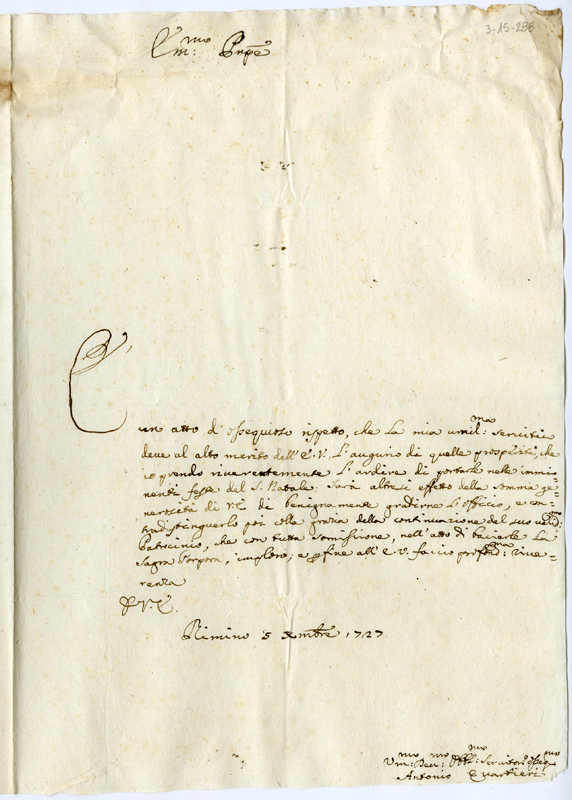 3-15-286
Em:mo Prnpe
E
un atto di ossequioso rispetto, che la mia umil:ma servitù
deve al alto merito dell'E.V. l'augurio di quelle prosperità, che
io prendo riverentemente l'ardire di portarle nelle immi=
nenti feste del S. Natale. Sarà altresì effetto della somma ge=
nerosità di V.E. di benignamente gradirne l'officio, e con=
tradistinguerlo poi colla grazia della continuazione del suo valid:mo
Patrocinio, che con tutta somissione, nell'atto di baciarle la
Sagra Porpora, imploro; e per fine all'E.V. faccio profond:ma rive=
renza
D V.E.
Rimino 5 Xmbre 1727
Um:mo Dev:mo Obb:mo Servitore osseq:mo
Antonio Quartieri